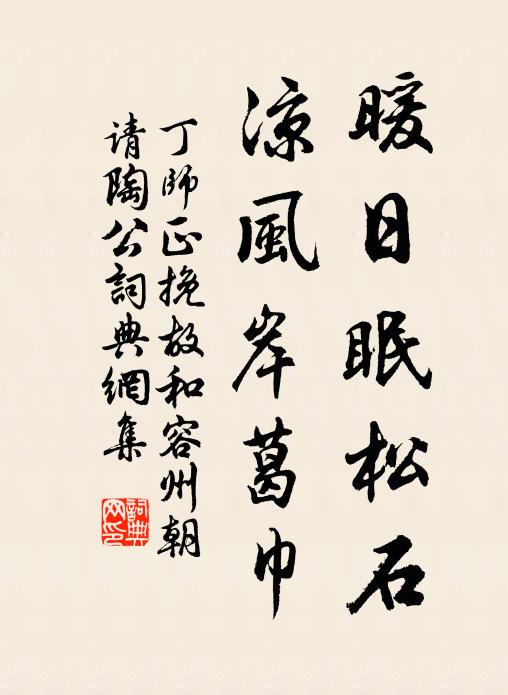 暖日眠松石
凉風岸葛巾
丁師正挽故和容州朝
请陶公詞典網集
詞典网印